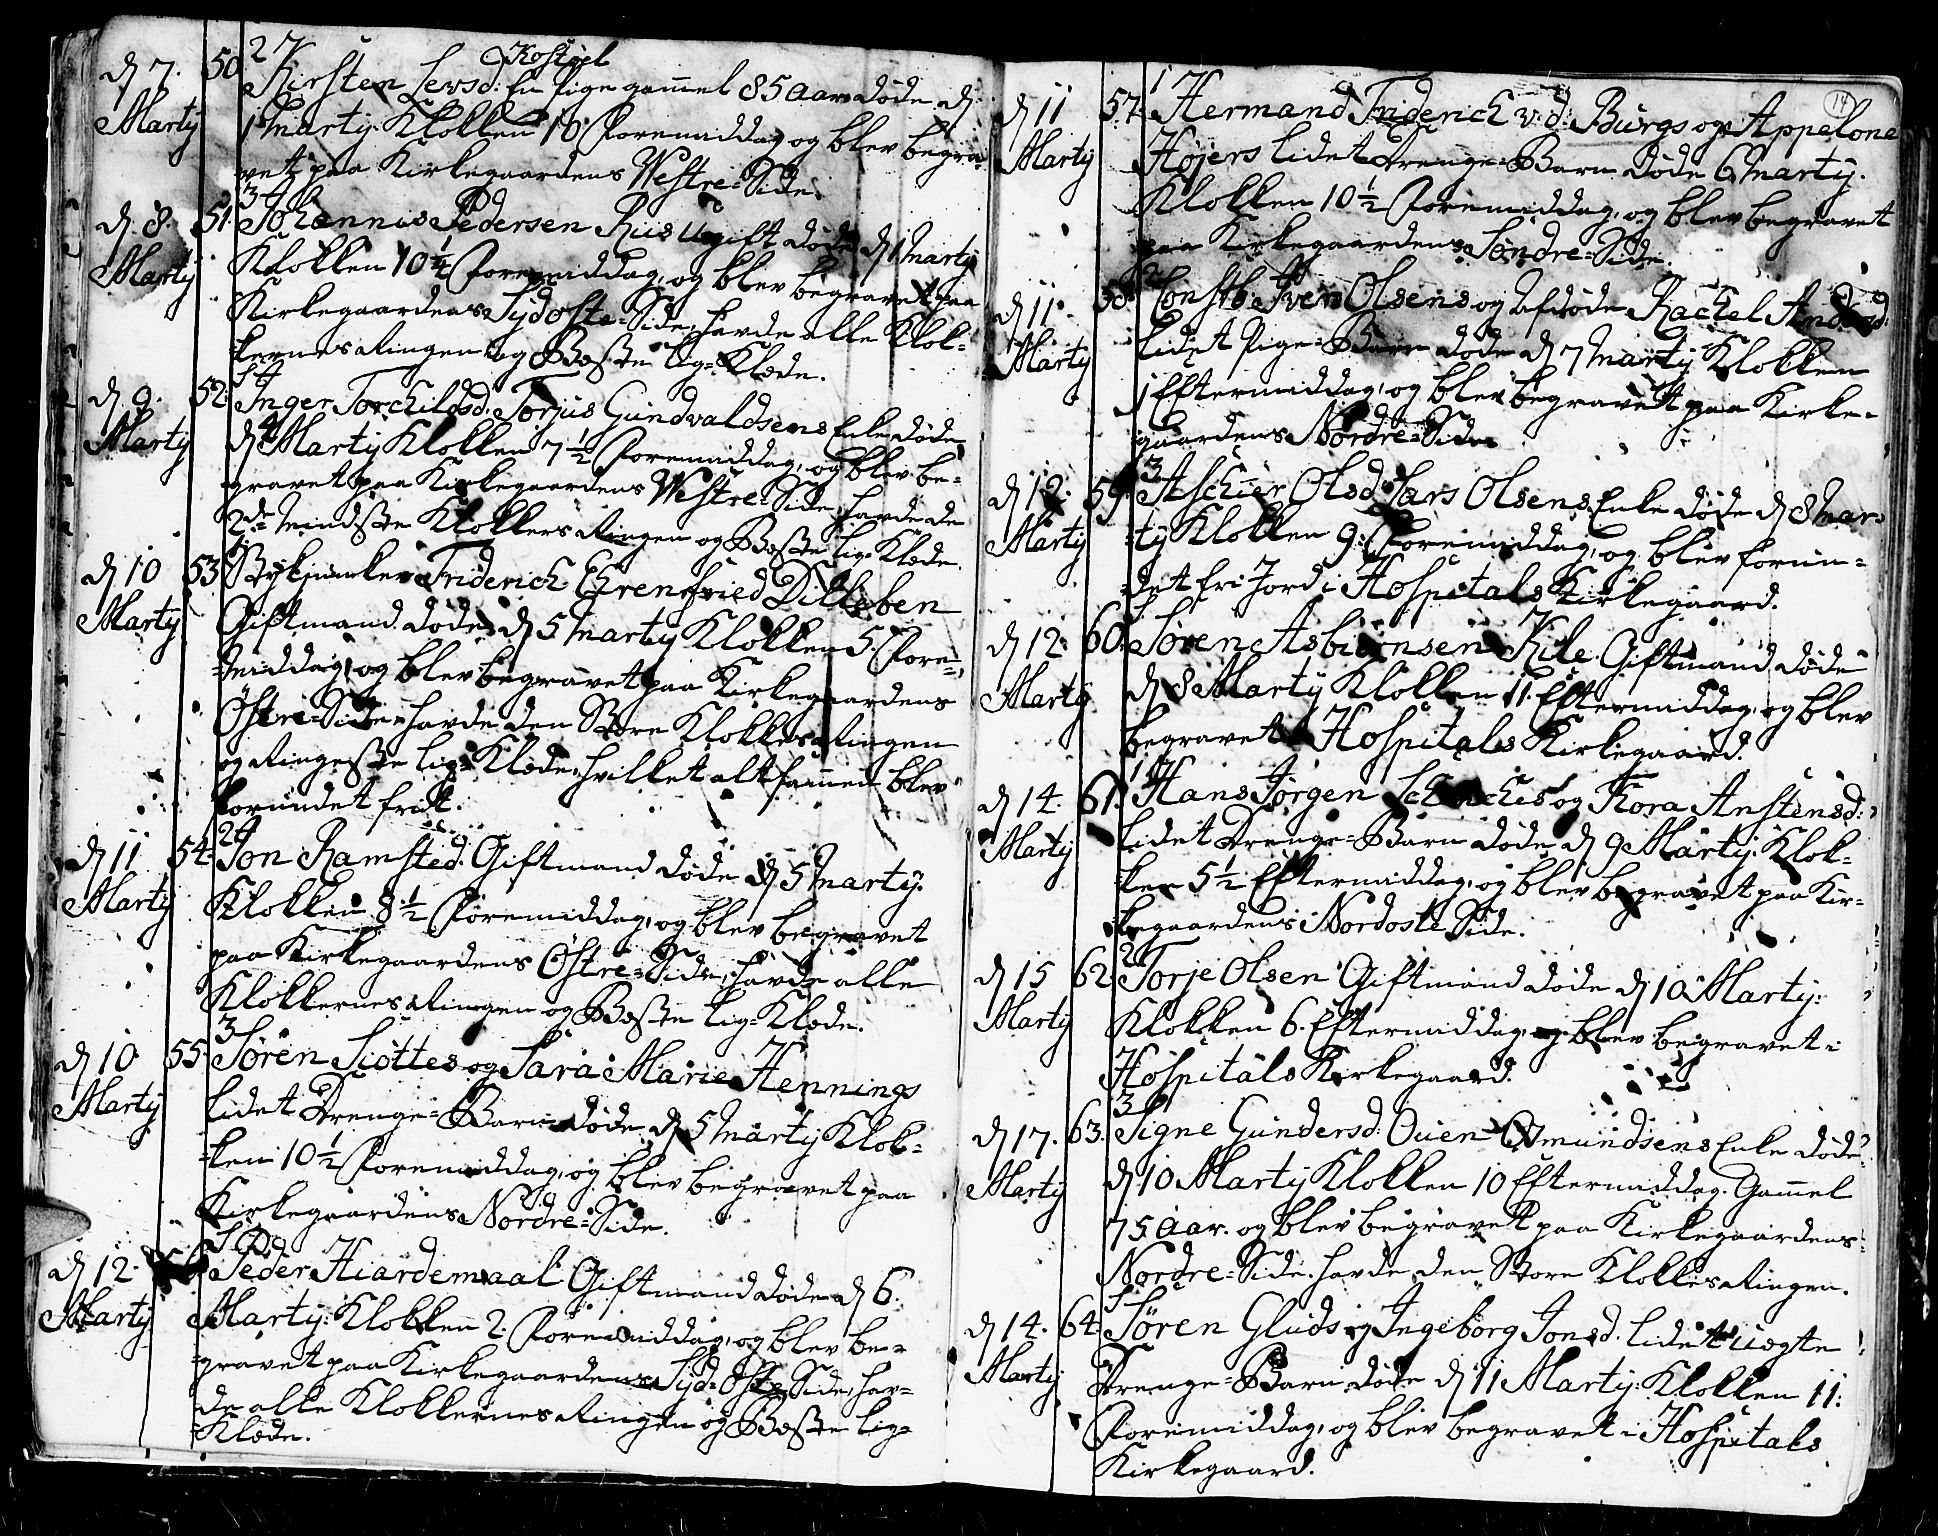 d 7. Marty 50. 27
Kostøel
Kirsten Levsd: En Pige gamel 85 Aar døde d
1 Marty Klokken 10 Foremiddag og blev begra-
vet paa Kirkegaardens Westre=Side.
d. 8. Marty 51. 34
Johannes Pedersen Riis Ugift døde d 1 Marty
Klokken 10 1/4 Foremiddag, og blev begravet paa
Kirkegaardens Sydoste=Side, havde alle Klok-
kernes Ringen og Beste Lig=Klæde.
d. 9. Marty 52.
Inger Torchildsd: Torjus Gundvaldsens Enke døde
d 4 Marty Klokken 7 1/2 Foremiddag, og blev be-
gravet paa Kirkegaardens Westre=Side, havde de
2de Mindste Klokkers Ringen og Beste Lig=Klæde.
d 10 Marty 53.
Stykjunker Friderich Ehrenfried Ditleben
Giftmand døde d 5 Marty Klokken 5. Fore-
middag, og blev begravet paa Kirkegaardens
Østre=Side, havde den Store Klokkes Ringen
og Ringeste Lig=Klæde, hvilket alt sammen blev
forundet frit.
d 11 Marty 54. 24
Jon Ramsted. Giftmand døde d 5 Marty.
Klokken 8 1/2 Foremiddag, og blev begravet
paa Kirkegaardens Østre=Side, havde alle
Klokkernes Ringen og Beste Lig=Klæde.
d 10. Marty 55. 3
Søren Siøttes og Sara Marie Hennings
lidet Drenge=Barn døde d 5 Marty Klok-
ken 10 1/2 Foremiddag, og blev begravet paa
Kirkegaardens Nordre=Side.
d 12. Marty 56
Peder Hiardemaal Giftmand døde d 6.
Marty: Klokken 2. Foremiddag, og blev be-
gravet paa Kirkegaardens Syd=Oste Side, hav-
de alle Klokkernes Ringen og Beste Lig=
Klæde.
14
d 11 Marty 57. 17
Hermand Friderich v: d: Burgs og Appelone
Højers lidet Drenge=Barn døde 6 Marty.
Klokken 10 1/2 Foremiddag, og blev begravet
paa Kirkegaardens Søndre=Side.
d 11. Marty 58.
Constb. Sven Olsens og Afdøde Rachel
lidet Pige=Barn døde d 7 Marty Klokken
1 Eftermiddag, og blev begravet paa Kirke-
gaardens Nordre=Side
d 12. Marty 59. 3
Aschier Olsd: Lars Olsens Enke døde d 8 Mar-
ty Klokken 9. Foremiddag, og blev forun-
det fri Jord i Hospitals Kirkegaard.
d 12. Marty 60.
Søren Asbiørnsen Kile Giftmand døde
d 8 Marty Klokken 11. Eftermiddag, og blev
begravet i Hospitals Kirkegaard.
d 14. Marty 61.
Hans Jørgen og Kora Anstensd:
lidet Drenge=Barn døde d 9 Marty: Klok-
ken 5 1/2 Eftermiddag, og blev begravet paa Kir-
kegaardens Nordoste Side.
d 15 Marty 62. 2
Torje Olsen Giftmand døde d 10 Marty:
Klokken 6. Eftermiddag, og blev begravet i
Hospitals Kirkegaard.
d 17. Marty 63. 3
Signe Gundersd: Ouen Osmundsens Enke døde
d 10 Marty Klokken 10 Eftermiddag. Gamel
75 Aar. og blev begravet paa Kirkegaardens
Nordre=Side. havde den Store Klokkes Ringen.
d 14. Marty 64.
Søren Gluds og Ingeborg Jonsd. lidet uægte
Drenge=Barn døde d 11 Marty: Klokken 11:
Foremiddag, og blev begravet i Hospitals
Kirkegaard.